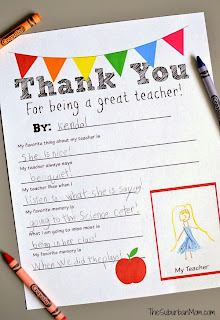 Thank You
For being a great teacher!
By: kendal
My favorite thing about my teacher is
She is nice!
My teacher always says
be quiet!
My teacher likes when I
listen to what she is saying!
My favorite memory is
going to the Science Ceter!
What I am going to miss most is
being in her class!
My favorite memory is
When We did the planet
My Teacher
TheSuburbanMom.com